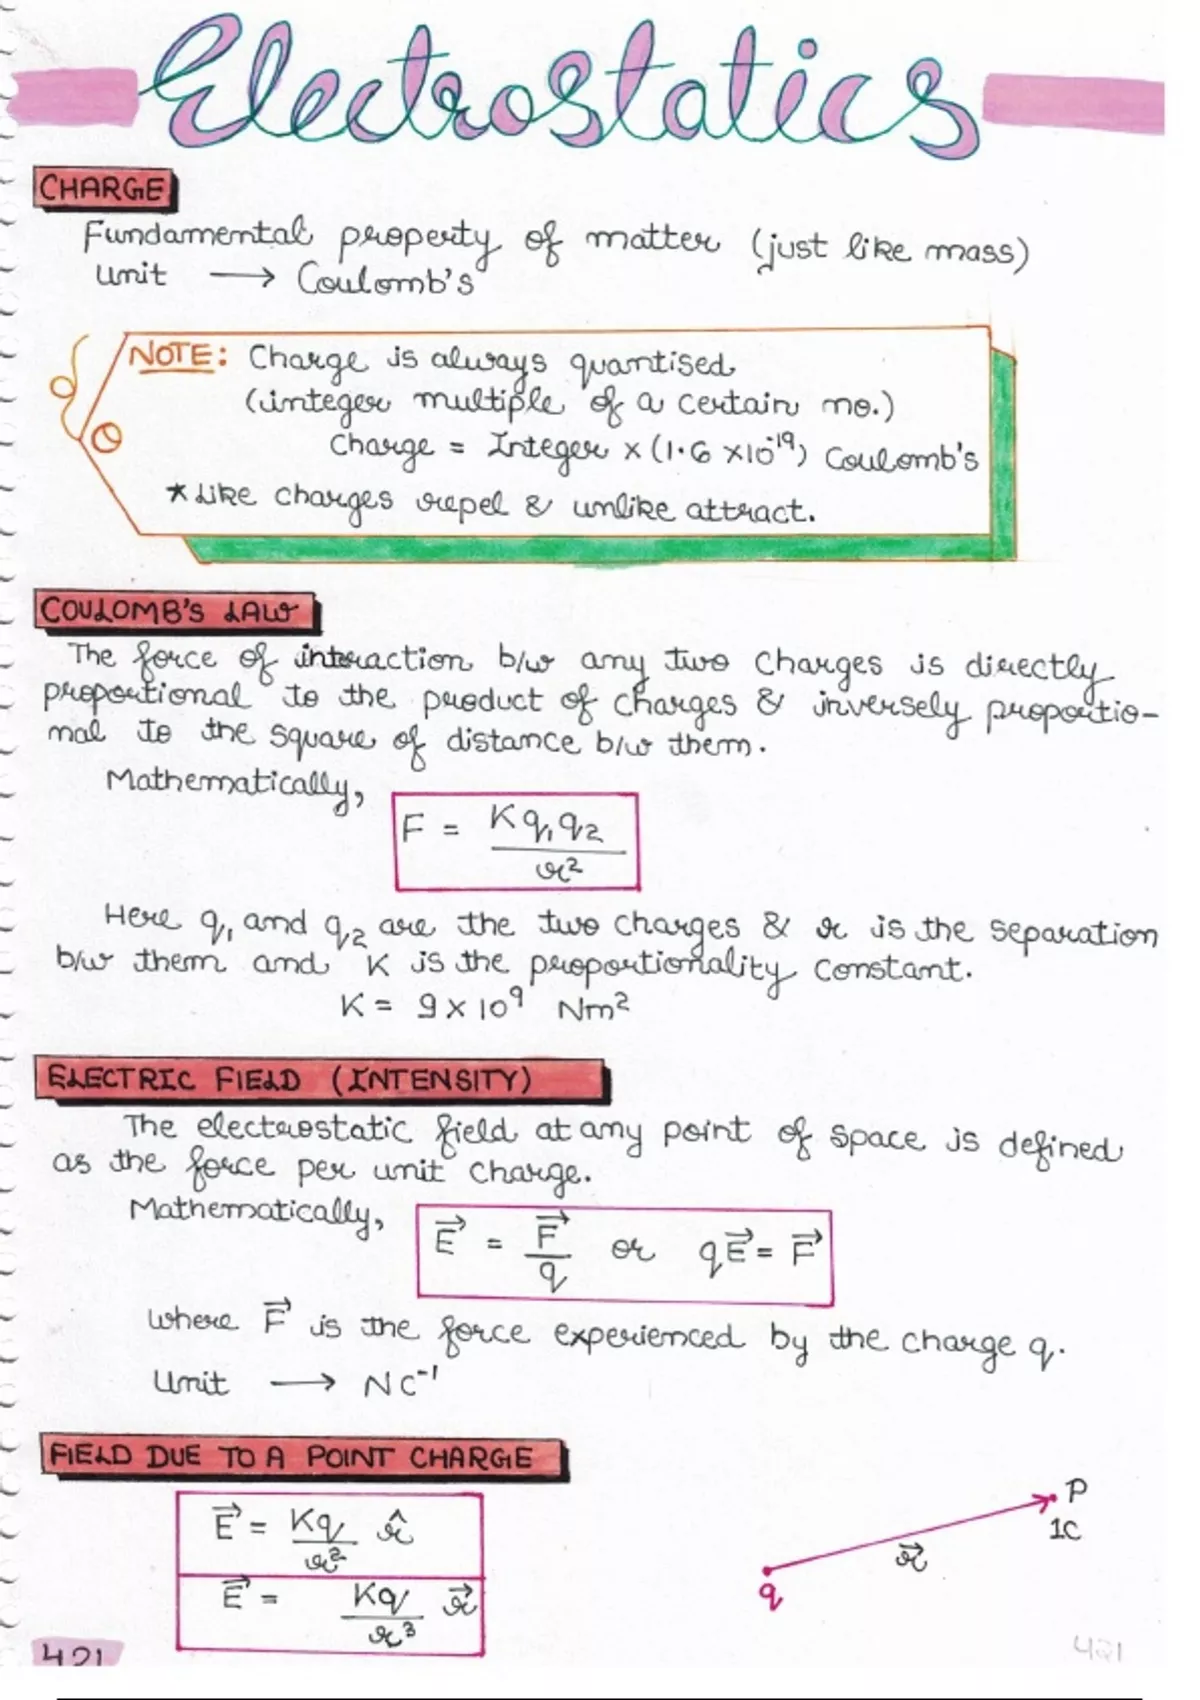 Electrostatics
CHARGE
Fundamental property of matter (just like mass)
Unit → Coulomb's
NOTE: Charge is always quantised
(integer multiple of a certain no.)
Charge = Integer × (1.6 × 10⁻¹⁹) Coulomb's
* Like charges repel & unlike attract.
COULOMB'S LAW
The force of interaction b/w any two charges is directly
proportional to the product of charges & inversely proportio-
nal to the square of distance b/w them.
Mathematically,
F = Kq₁q₂ / r²
Here q₁ and q₂ are the two charges & r is the separation
b/w them and K is the proportionality constant.
K = 9 × 10⁹ Nm²
ELECTRIC FIELD (INTENSITY)
The electrostatic field at any point of space is defined
as the force per unit charge.
Mathematically,
E⃗ = F⃗ / q or qE⃗ = F⃗
where F⃗ is the force experienced by the charge q.
Unit → NC⁻¹
FIELD DUE TO A POINT CHARGE
E⃗ = Kq / r² r̂
E⃗ = Kq / r³ r⃗
P
1C
r⃗
q
421
421